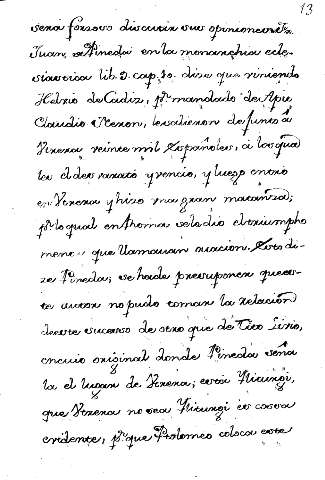 13
sera forsoso discutir sus opiniones: Fr.
Juan, de Pineda en la monarchia ecle-
siastica lib. 9. cap. 10. dize que viniendo
Helvio de Cadiz, pr. mandado de Apio
Claudio Neron, le salieron de junto â
Vtrera veinte mil Españoles, à los qua
les el desvarató y vencio, y luego entró
en Vtrera y hizo vna gran matanza;
pr. lo qual en Rroma se le dio el triumpho
menor que llamauan ouacion. Esto di-
ze Pineda; se ha de presuponer que es-
te autor no pudo tomar la relacion
de este sucesso de otro que de Tito Livio,
en cuio original donde Pineda seña
la el lugar de Vtrera; está Yliturgi,
que Vtrera no sea Yliturgi es cossa
evidente, pr. que Ptolomeo coloca este